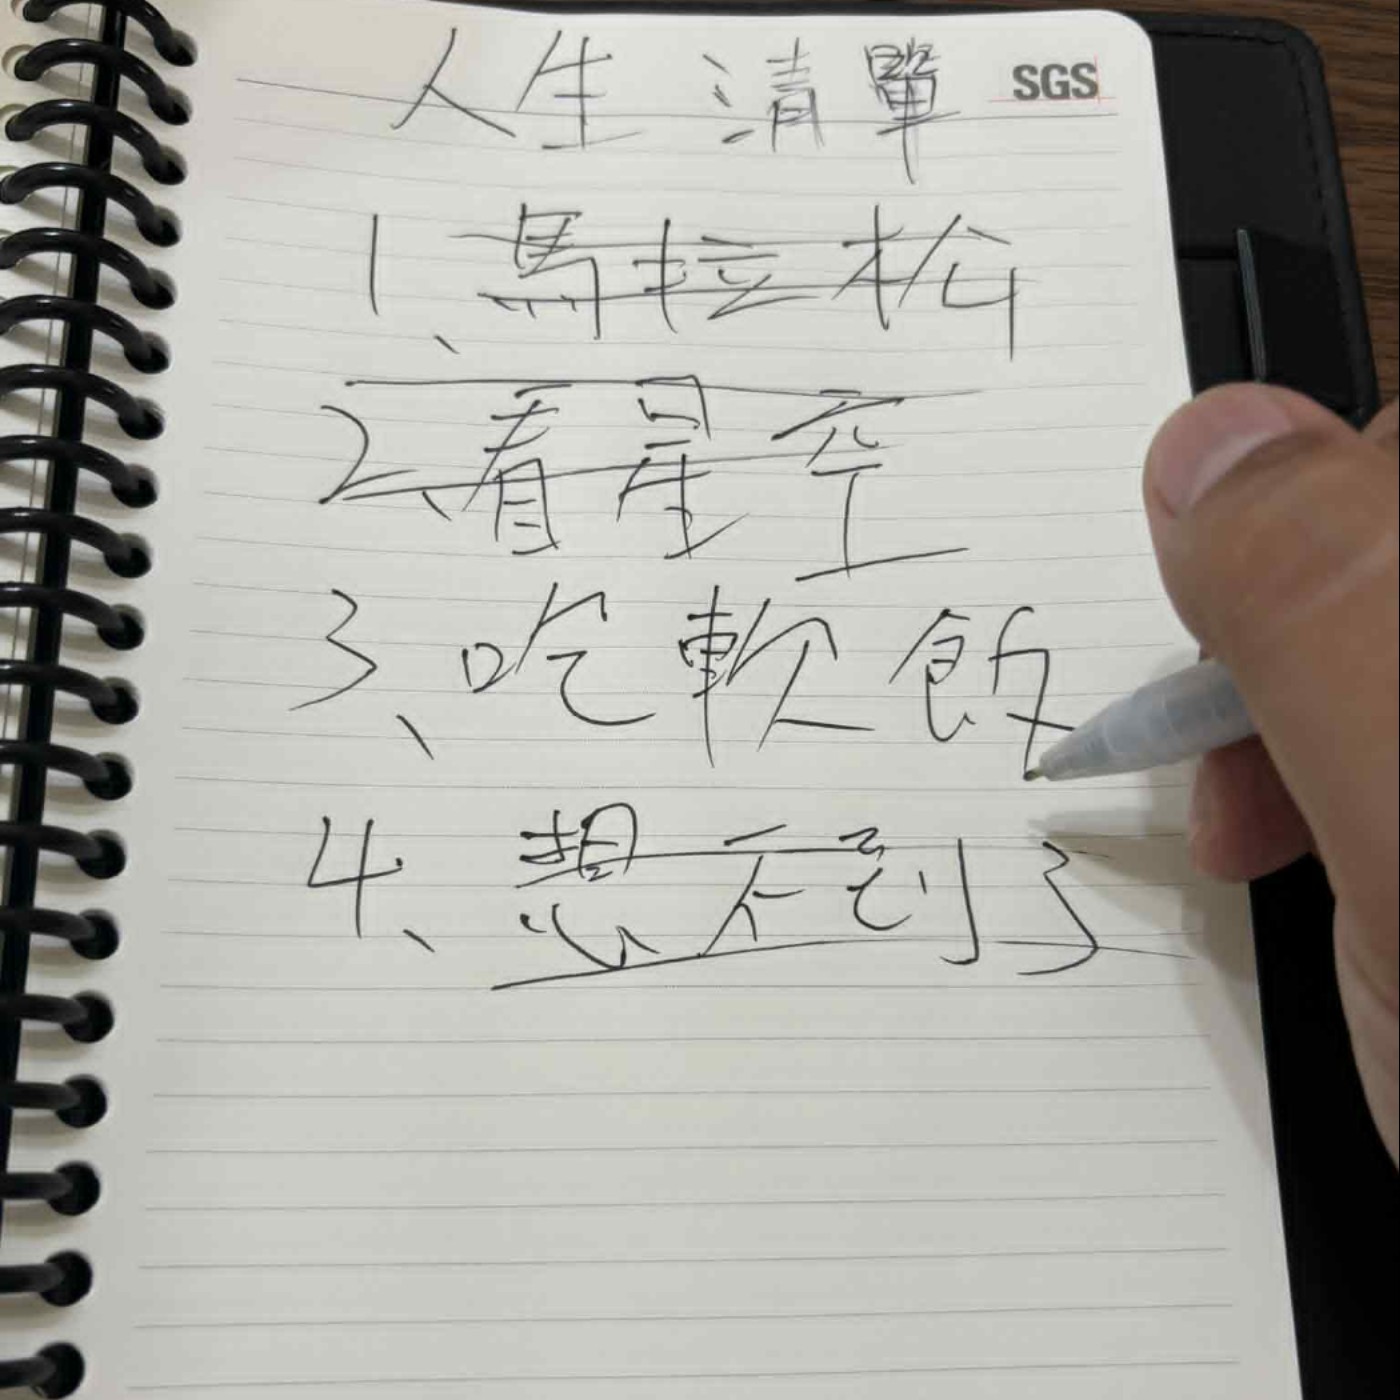 人生清單
SGS
1、馬拉松
2、看星空
3、吃軟飯
4、想不到了